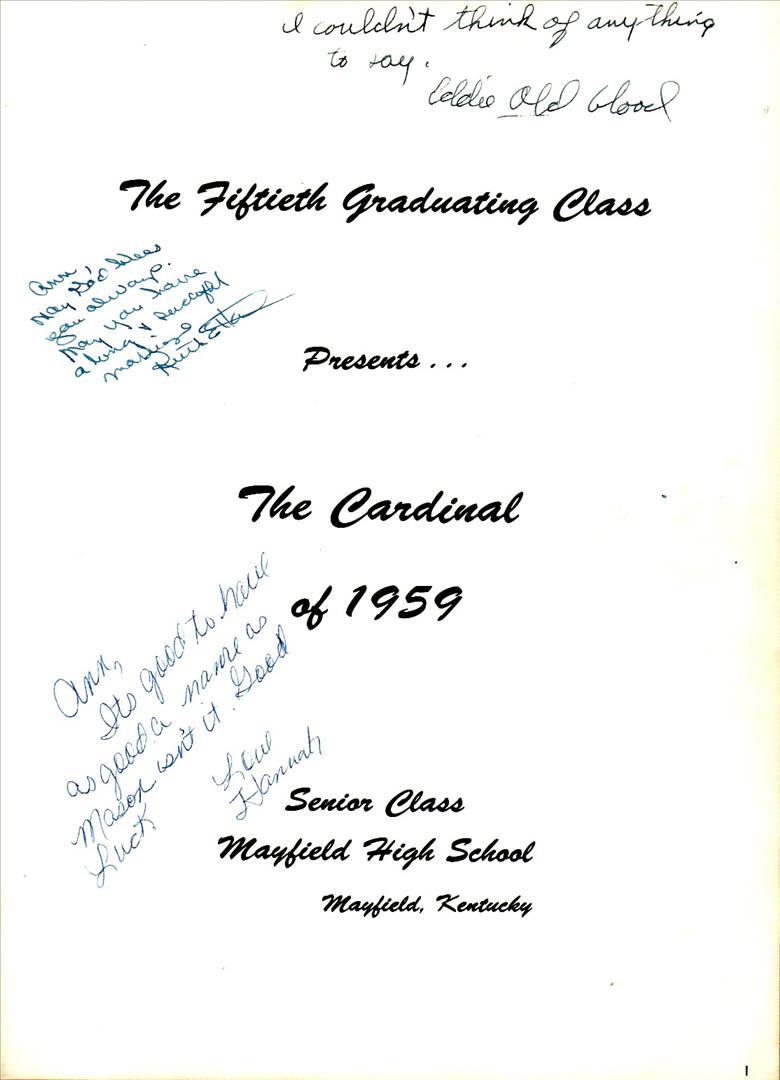 I couldn't think of anything
to say.
Eddie Old blood
The Fiftieth Graduating Class
Ann,
May God bless
you always.
May you have
a long & successful
marriage
Ruth
Presents . . .
The Cardinal
of 1959
Ann,
Its good to have
as good a name as
Mason isn't it. Good
Luck
Love
Hannah
Senior Class
Mayfield High School
Mayfield, Kentucky
1